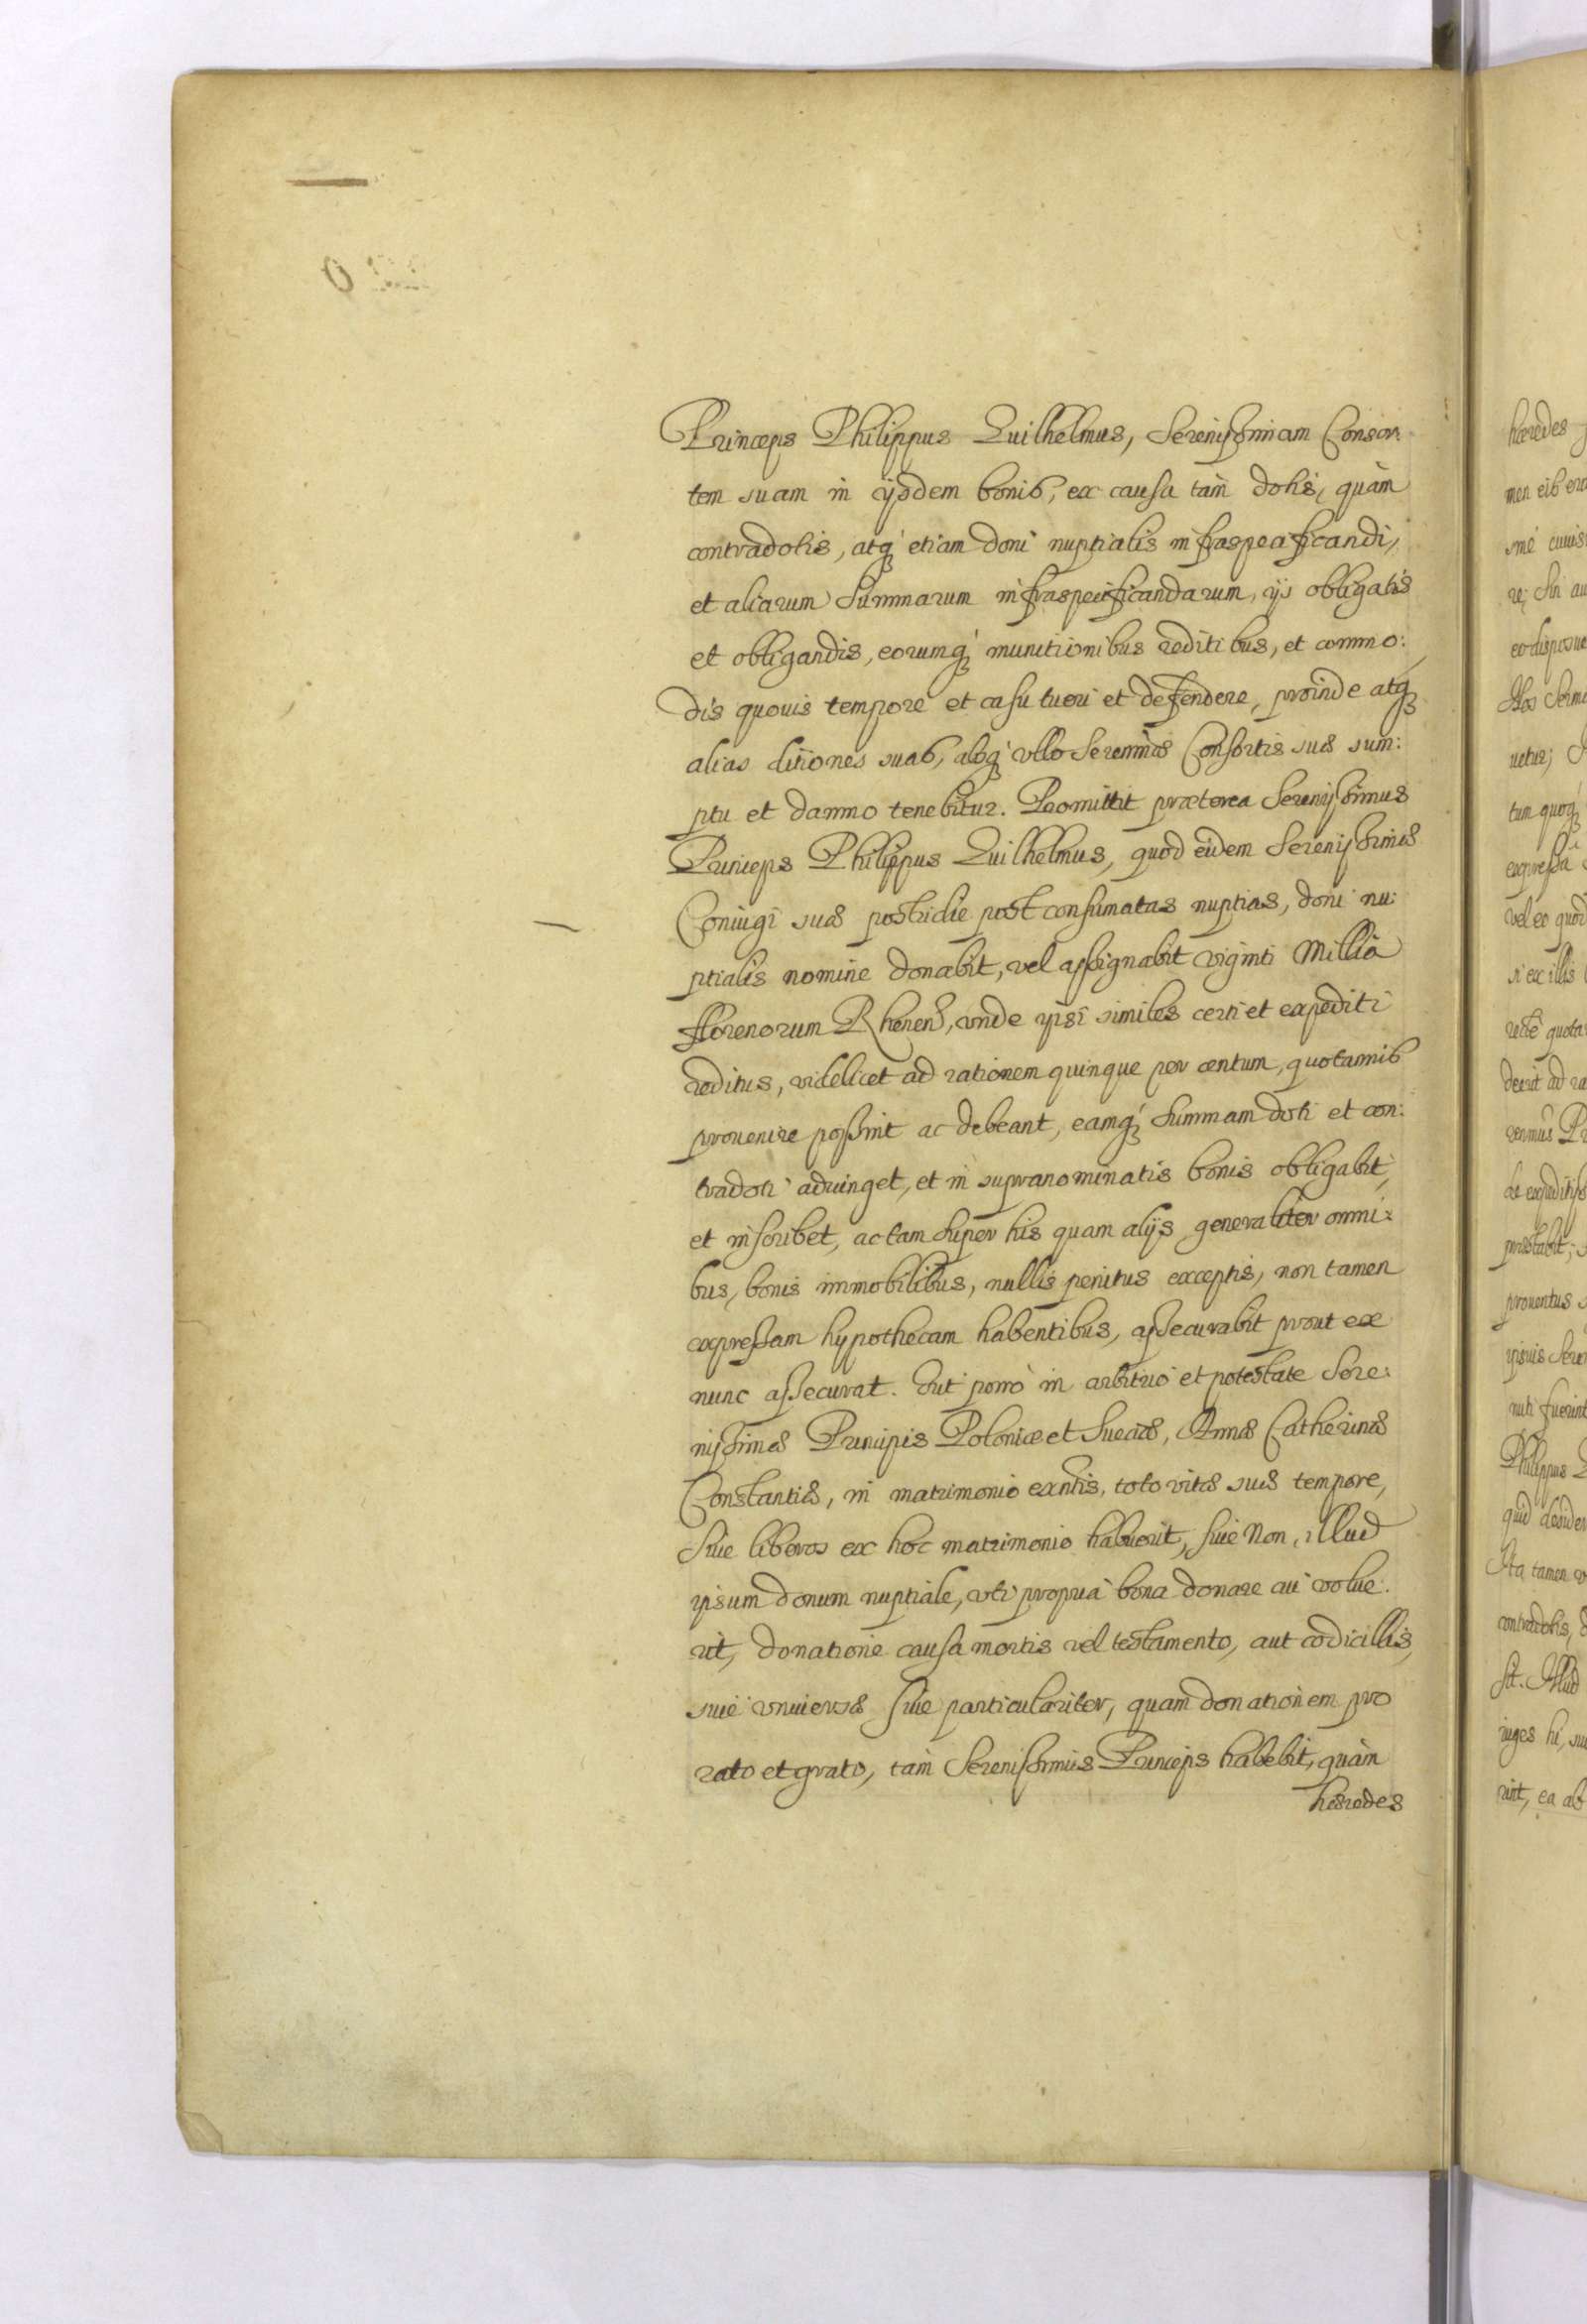 Princeps Philippus Guilhelmus, Serenissimam Consor:
tem suam in ijsdem bonis, ex causa tàm dotis, quàm
contradotis, atq́ etiam doni nuptialis infraspecificandi,
et aliarum Summarum infraspecificandarum, ijs obligatis
et obligandis, eorumq́ munitionibus reditibus, et commo:
dis quouis tempore et casu tueri et defendere, proinde atq́
alias ditiones suas, absq́ vllo Serenmæ Consortis suæ sum:
ptu et damno tenebitur. Promittit præterea Serenissimus
Princeps Philippus Guilhelmus, quod eidem Serenissimæ
Coniugi suæ postridie post consumatas nuptias, doni nu:
ptialis nomine donabit, vel assignabit viginti Millia
florenorum Rhenen, vnde ipsi similes certi et expediti
reditus, videlicet ad rationem quinque per centum, quotannis
prouenire possint ac debeant, eamq́ Summam doti et con:
tradoti adiunget, et in supranominatis bonis obligabit,
et inscribet, ac tam super his quam alijs generaliter omni:
bus, bonis immobilibus, nullis penitus exceptis, non tamen
expressam hypothecam habentibus, assecurabit prout ex
nunc assecurat. Erit porrò in arbitrio et potestate Sere:
nissimæ Principis Poloniæ et Sueciæ, Annæ Catherinæ
Constantiæ, in matrimonio exntis, toto vitæ suæ tempore,
siue liberos ex hoc matrimonio habuerit, siue non, illud
ipsum donum nuptiale, vti propria bona donare cui volue:
rit, donatione causa mortis vel testamento, aut codicillis,
siue vniuersæ siue particulariter, quam donationem pro
rato et grato, tàm Serenissimus Princeps habebit, quàm
hæredes
hæredes
men eis
re; Sin au
eo disposue
tum quoq́
expressa
vel eo quod
si ex illis
quota
deerit ad ra
præstabit;
prouentus
ipsius Sere
fuerint
Philippus
quid desider
Ita tamen
contradotis,
sit. Illud
iuges hi, siu
rint, ea ab